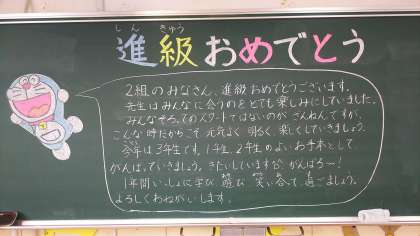 しん きゅう
進級おめでとう
2組のみなさん、進級おめでとうございます。
先生はみんなに会うのをとても楽しみにしていました。
みんなそろってのスタートではないのが ざんねんですが、
こんな時だからこそ 元気よく 明るく、楽しくしていきましょう。
今年は3年生です。1年生、2年生のよいお手本として
がんばっていきましょう。きたいしていますよ。がんばろ〜!
1年間いっしょに学び 遊び 笑い合って、過ごしましょう。
よろしくおねがいします。